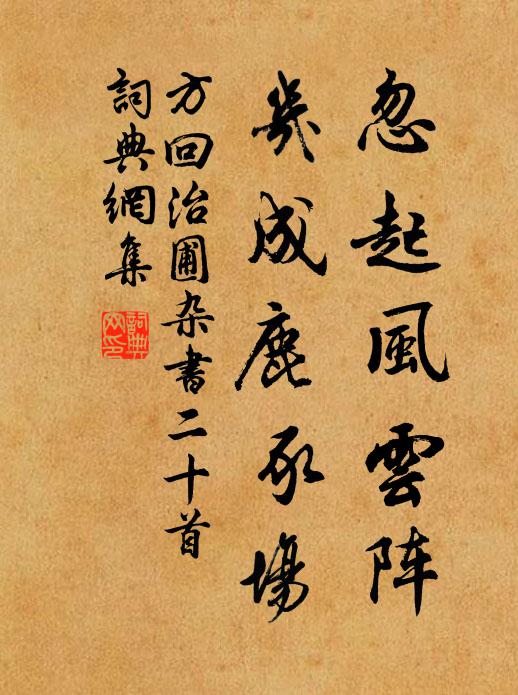 忽起風雲阵
幾成鹿豕場
方回治圃杂書二十首
詞典網集
詞典
网印